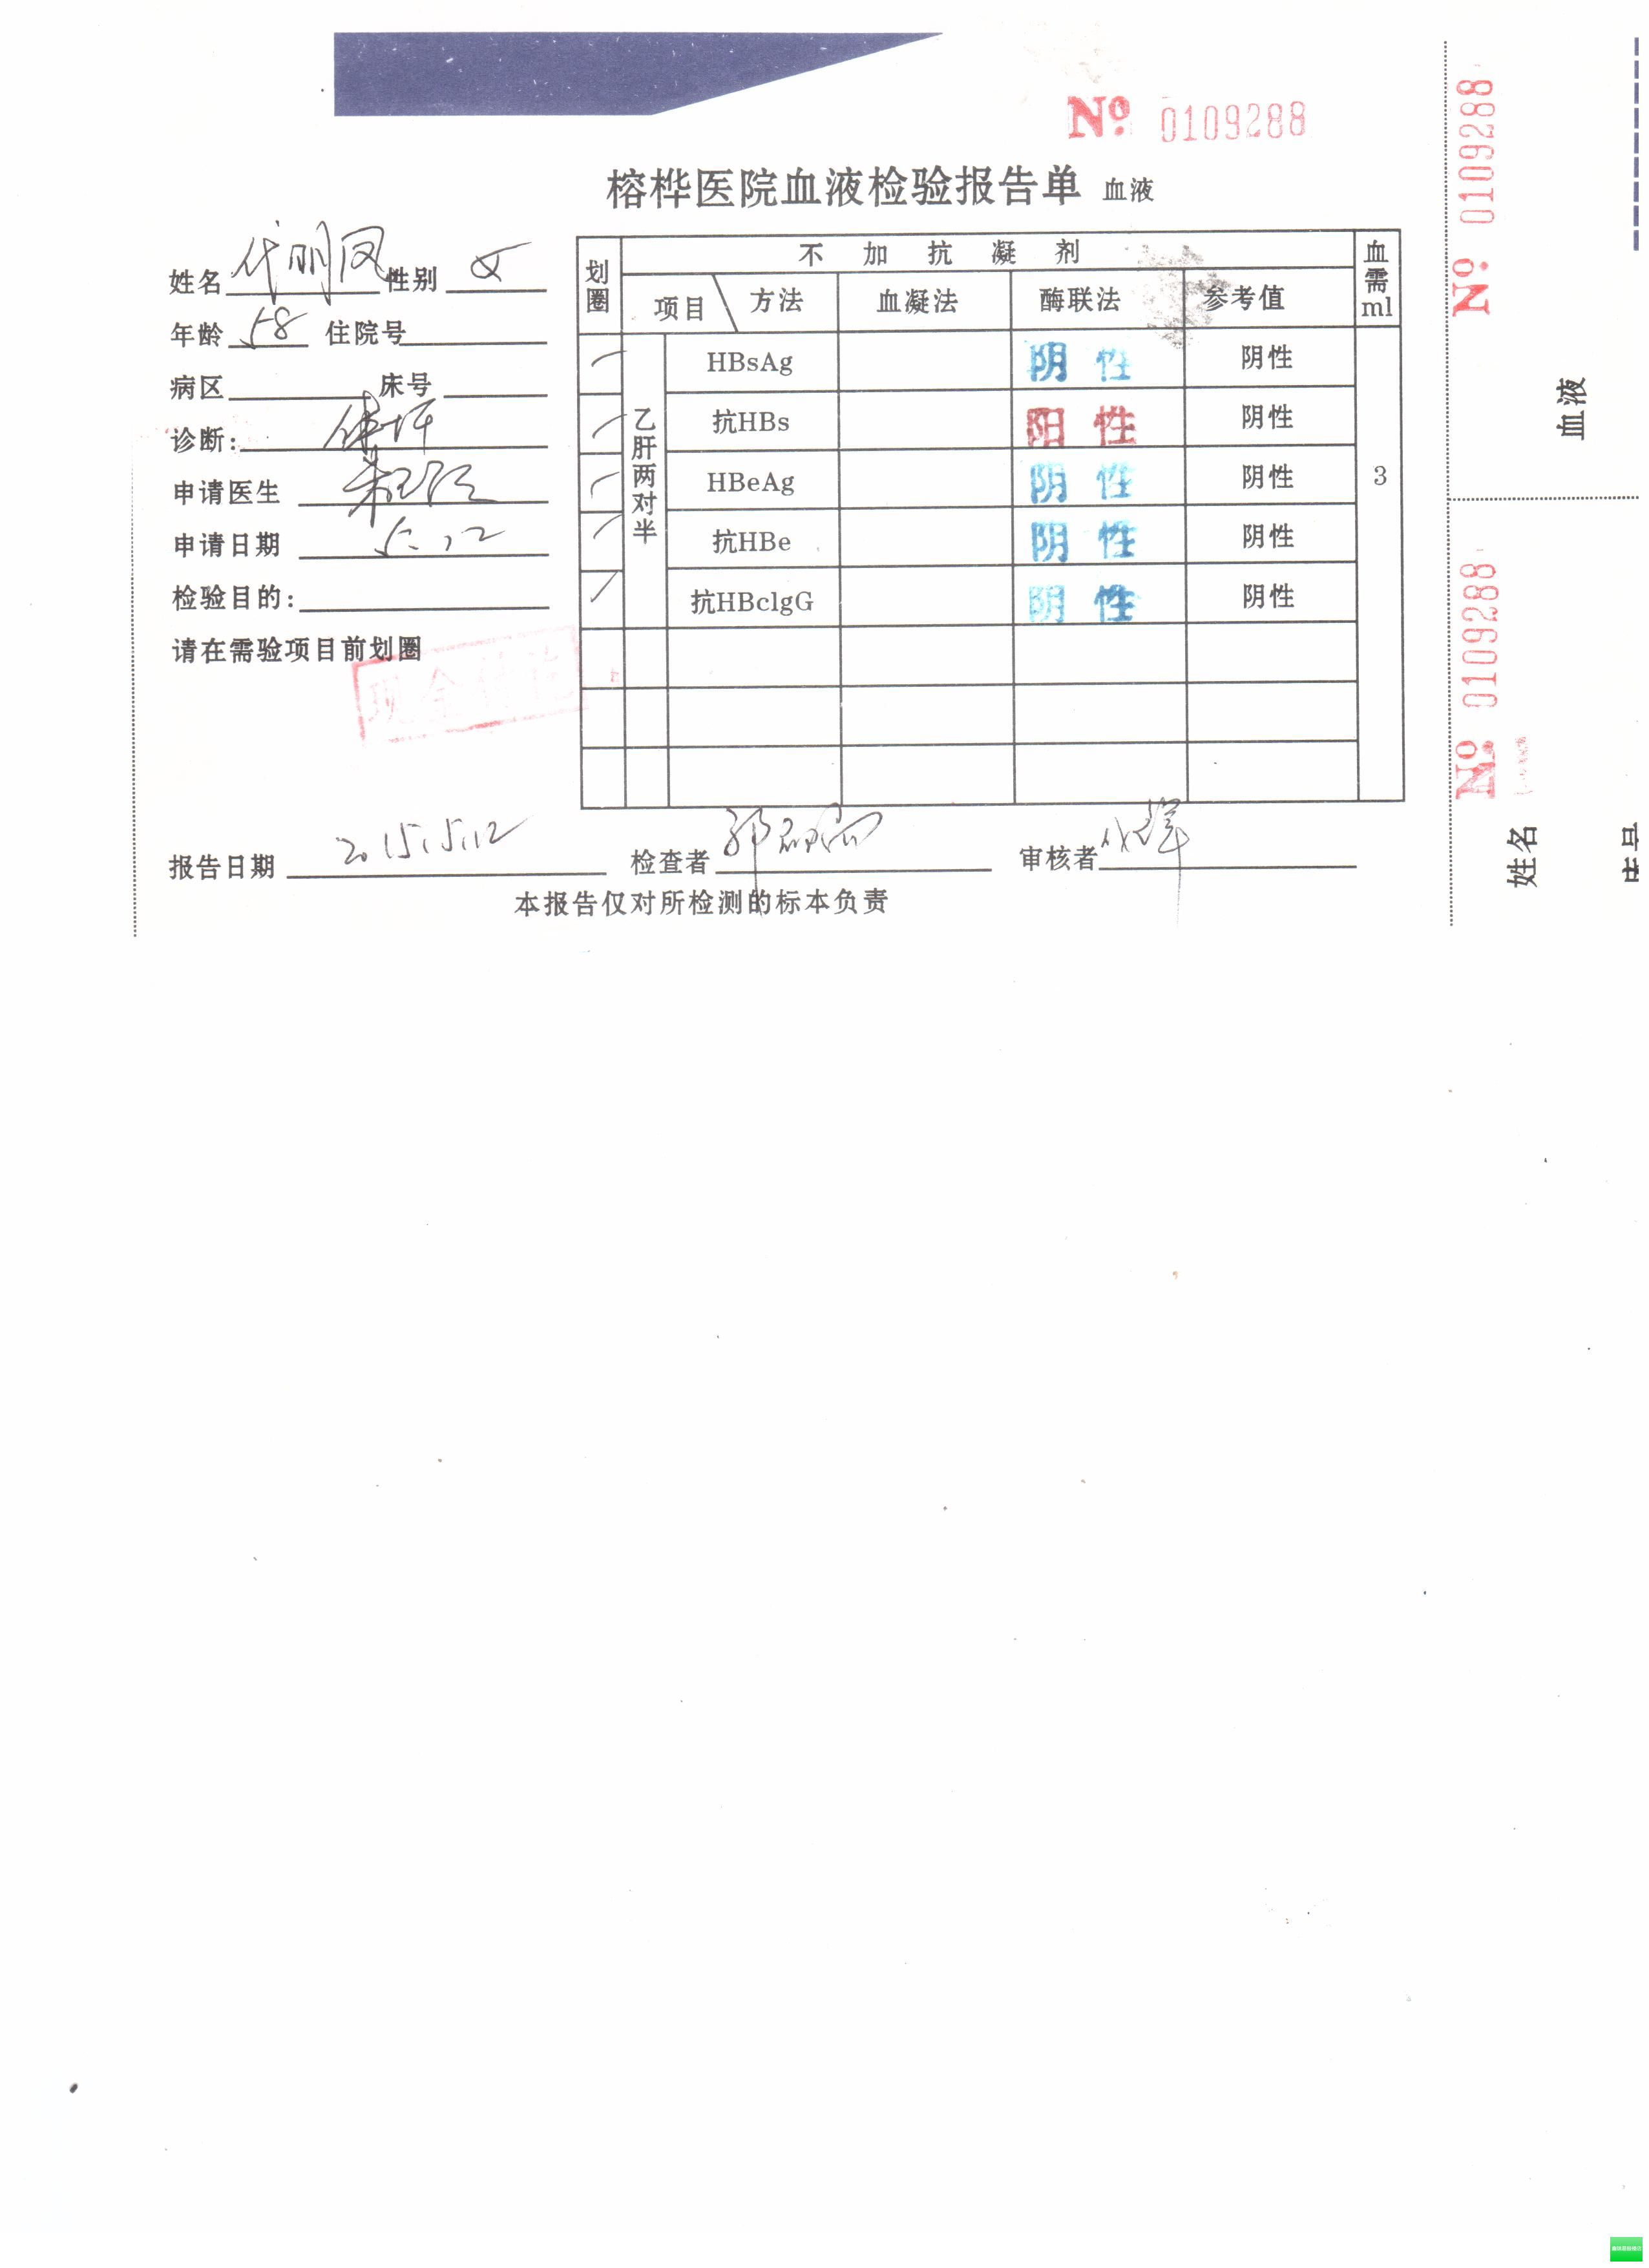 № 0109288
榕桦医院血液检验报告单 血液
姓名 代明凤 性别 女
年龄 58 住院号
病区 床号
诊断: 体检
申请医生
申请日期 5.12
检验目的:
请在需验项目前划圈
现金
划圈 不加抗凝剂 血需ml
项目 方法 血凝法 酶联法 参考值
乙肝两对半
HBsAg 阴性 阴性
抗HBs 阳性 阴性
HBeAg 阴性 阴性 3
抗HBe 阴性 阴性
抗HBclgG 阴性 阴性
报告日期 2015.5.12 检查者 审核者
本报告仅对所检测的标本负责
№ 0109288
血液
№ 0109288
姓名